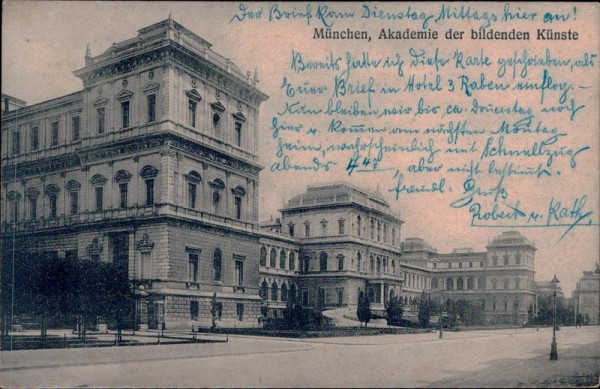 Der Brief kam Dienstag Mittags hier an!
München, Akademie der bildenden Künste
Bereits hatte ich diese Karte geschrieben, als
Euer Brief in Hotel 3 Raben einflog.-
Nun bleiben wir bis ca. Donnerstag noch
hier u. kommen am nächsten Montag
heim, wahrscheinlich mit Schnellzug
abends 4 47 aber nicht bestimmt.
freundl. Gruß
Robert u. Kath.